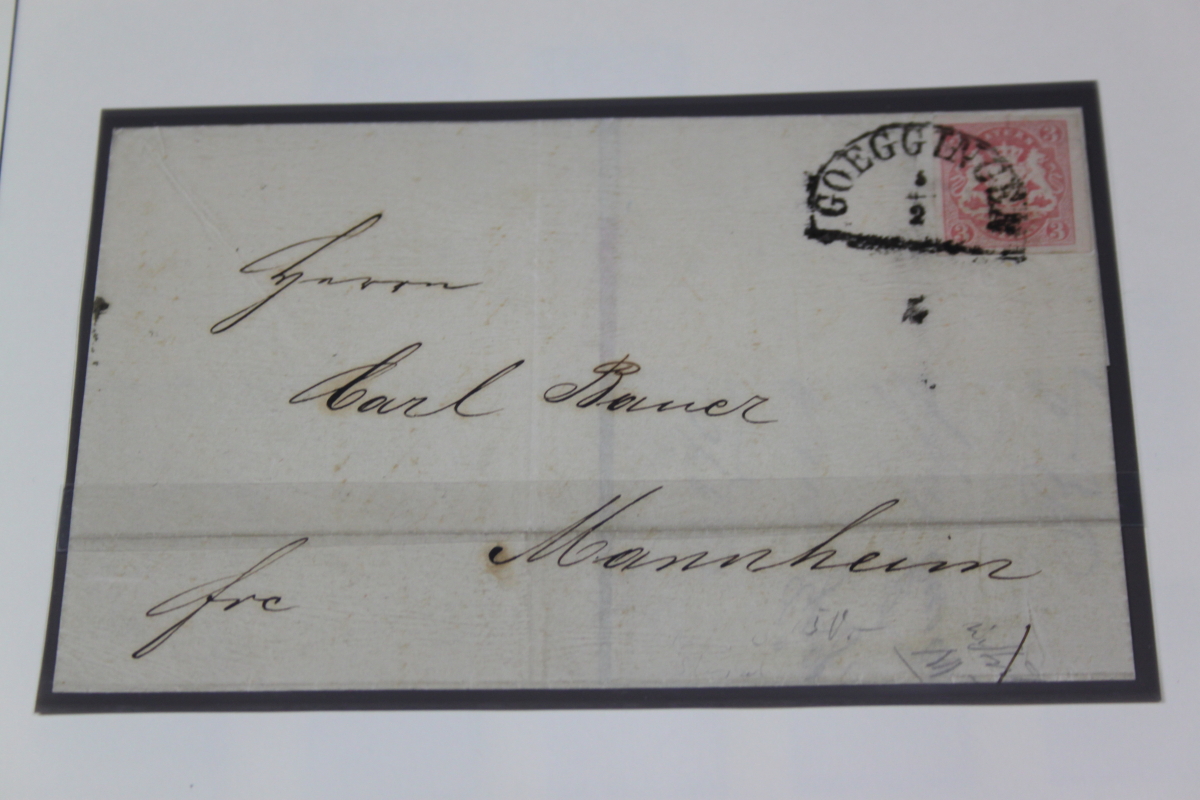 GOEGGINGEN
2
3
3 3
Herrn
Carl Bauer
Mannheim
frc
50.-